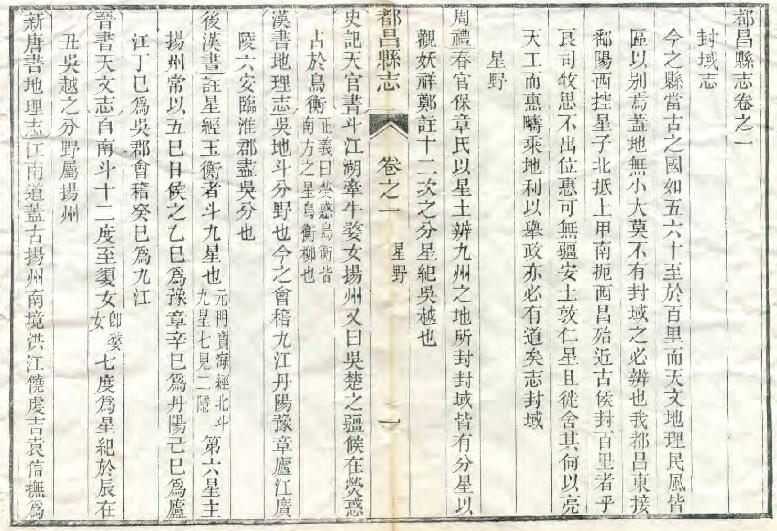 都昌縣志卷之一
封域志
今之縣當古之國如五六十至於百里而天文地理民風皆
區以別焉蓋地無小大莫不有封域之必辨也我都昌東接
鄱陽西控星子北抵上甲南扼西昌殆近古侯封百里者乎
良司牧思不出位惠可無疆安土敦仁星且徙舍其何以亮
天工而惠疇乘地利以舉政亦必有道矣志封域
星野
周禮春官保章氏以星土辨九州之地所封封域皆有分星以
觀妖祥鄭註十二次之分星紀吳越也
都昌縣志
卷之一
星野
一
史記天官書斗江湖牽牛婺女揚州又曰吳楚之疆候在熒惑
占於鳥衡正義曰熒惑鳥衡皆南方之星鳥衡柳也
漢書地理志吳地斗分野也今之會稽九江丹陽豫章廬江廣
陵六安臨淮郡盡吳分也
後漢書註星經玉衡者斗九星也元門寶海經北斗九星七見二隱第六星主
揚州常以五巳日侯之乙巳為豫章辛巳為丹陽己巳為廬
江丁巳為吳郡會稽癸巳為九江
晉書天文志自南斗十二度至須女即婺女七度為星紀於辰在
丑吳越之分野屬揚州
新唐書地理志江南道蓋古揚州南境洪江饒虔吉袁信撫為